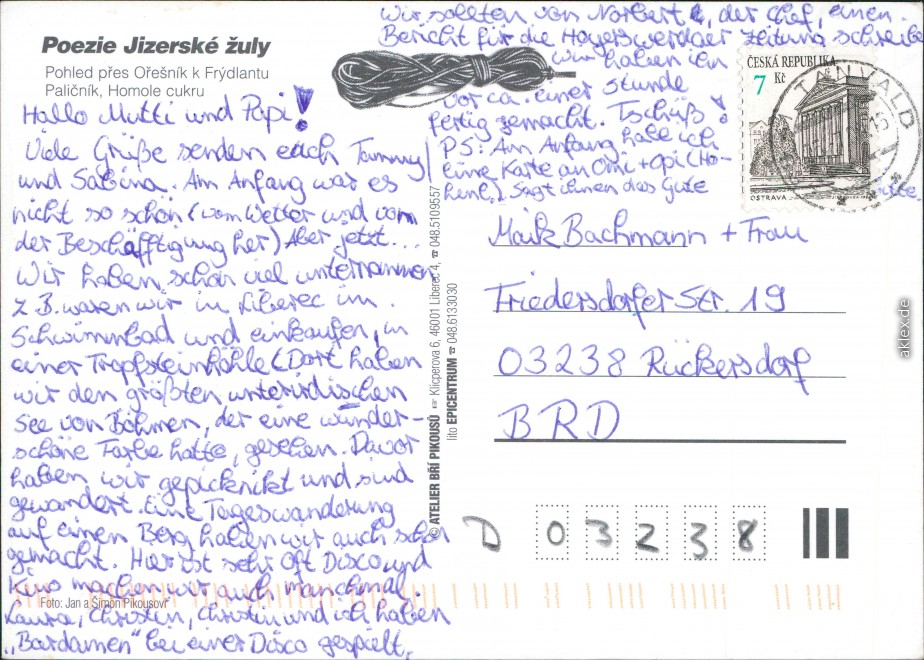 Poezie Jizerské žuly
Pohled přes Ořešník k Frýdlantu
Paličník, Homole cukru
Hallo Mutti und Papi!
Viele Grüße senden euch Tammy
und Sabina. Am Anfang war es
nicht so schön (vom Wetter und von
der Beschäfftigung her) Aber jetzt...
Wir haben schon viel unternommen
z.B. waren wir in Liberec im
Schwimmbad und einkaufen, in
einer Tropfsteinhöhle (Dort haben
wir den größten unterirdischen
See von Böhmen, der eine wunder-
schöne Farbe hatte, gesehen. Davor
haben wir gepicknikt und sind
gewandert. Eine Tageswanderung
auf einen Berg haben wir auch schon
gemacht. Hier ist sehr oft Disco und
Kino machen wir auch manchmal.
Laura, Christin, Christin und ich haben
"Bardamen" bei einer Disco gespielt.
Foto: Jan a Šimon Pikousovi
Wir sollten von Norbert, der Chef, einen
Bericht für die Hoyerswerdaer Zeitung schreibe
wir haben ihn
vor ca. einer Stunde
fertig gemacht. Tschüß!
PS: Am Anfang habe ich
eine Karte an Omi + Opi (Ho-
henl.) Sagt ihnen das Gute
© ATELIER BŘÍ PIKOUSŮ Klicperova 6, 46001 Liberec 4, ☎ 048.5109557
lito EPICENTRUM ☎ 048.6133030
ČESKÁ REPUBLIKA
7 Kč
OSTRAVA
TANVALD
Maik Bachmann + Frau
Friedersdorfer Str. 19
03238 Rückersdorf
BRD
D 03238
aklex.de